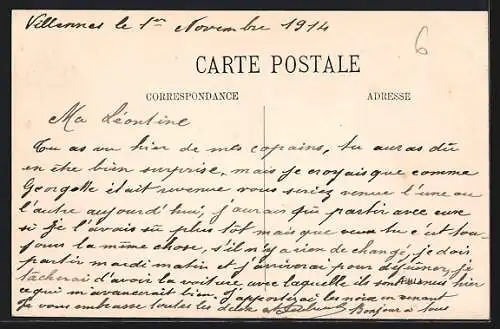 Villennes le 1er Novembre 1914
6
CARTE POSTALE
CORRESPONDANCE
ADRESSE
Ma Léontine
Tu as vu hier de mes copains, tu auras dû
en être bien surprise, mais je croyais que comme
Georgette était revenue vous seriez venue l'une ou
l'autre aujourd'hui, j'aurais pu partir avec eux
si je l'avais su plus tôt mais que veux tu c'est tou-
jours la même chose, s'il n'y a rien de changé, je dois
partir mardi matin et j'arriverai pour déjeuner, je
tâcherai d'avoir la voiture avec laquelle ils sont venus hier
ce qui m'avancerait bien, j'apporterai les noix en venant
Je vous embrasse toutes les deux
Bonjour à tous